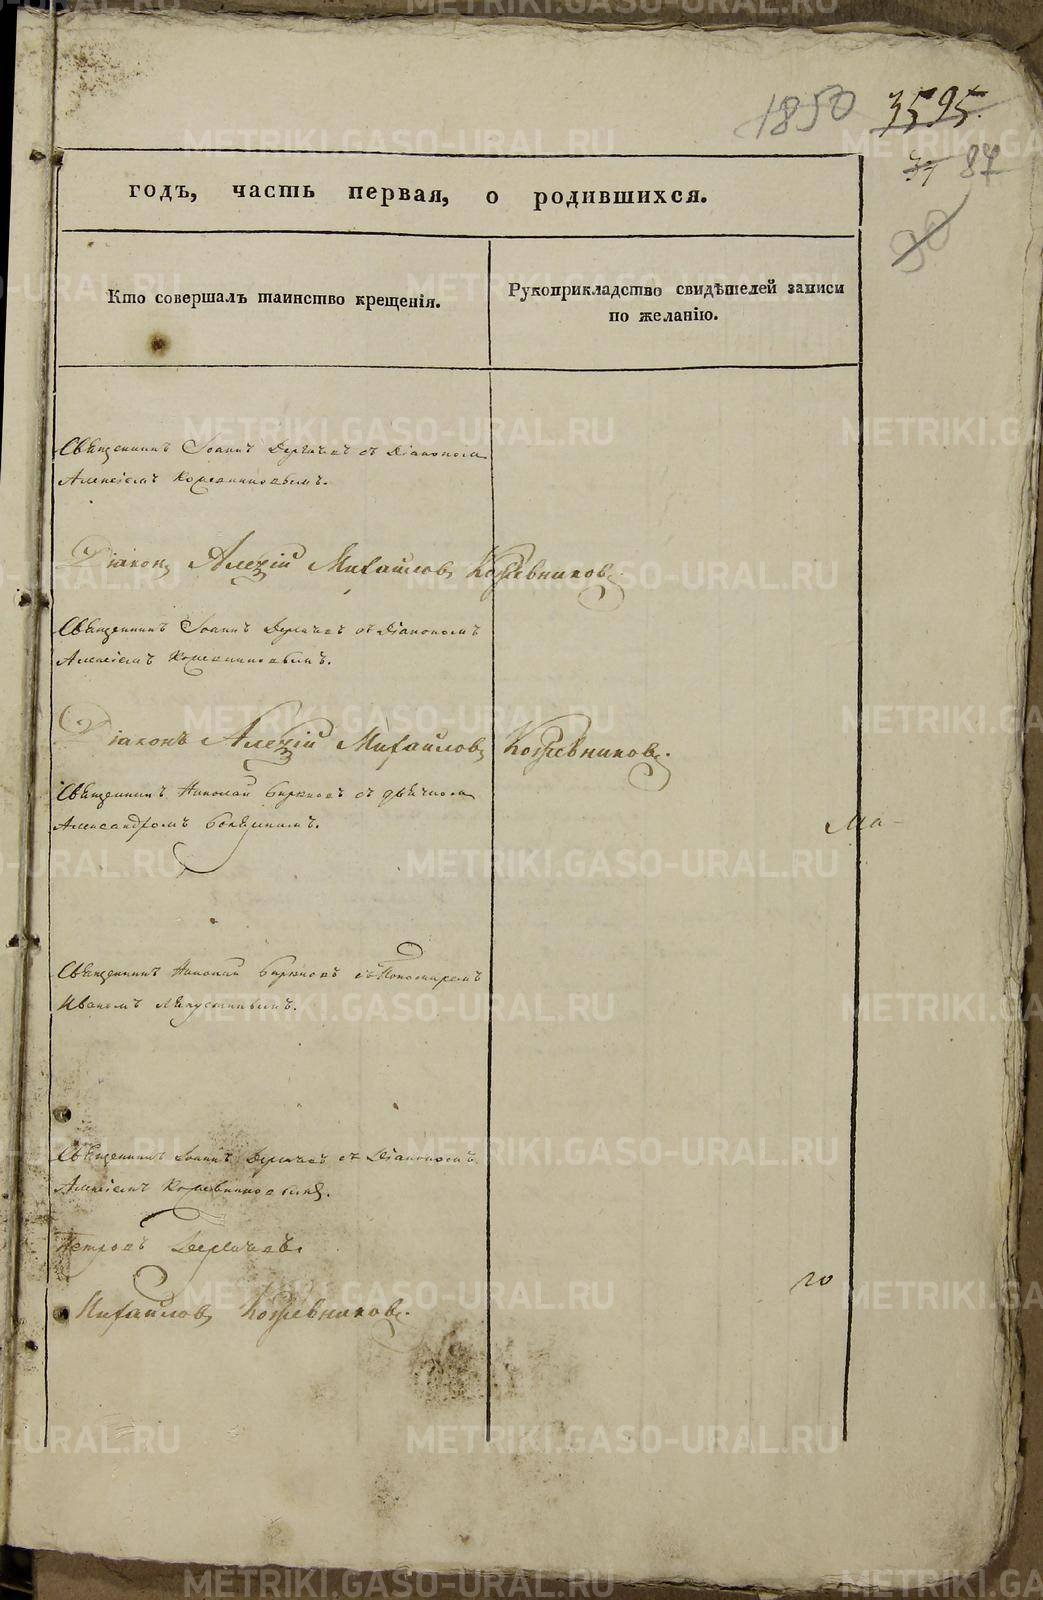 1850 3595.
37 87
90
годъ, часть первая, о родившихся.
Кто совершалъ таинство крещенія.
Рукоприкладство свидѣтелей записи
по желанію.
Священникъ Іоаннъ Дерягинъ съ Діакономъ
Алексіемъ Кожевниковымъ.
Діаконъ Алексій Михайловъ Кожевниковъ.
Священникъ Іоаннъ съ Діакономъ
Алексіемъ Кожевниковымъ.
Діаконъ Алексій Михайловъ Кожевниковъ.
Священникъ Николай съ дьячкомъ
Александромъ
Ма-
Священникъ Николай съ Пономаремъ
Иваномъ
Священникъ Іоаннъ съ Діакономъ
Алексіемъ Кожевниковымъ.
Петровъ
го
Михайловъ Кожевниковъ.
METRIKI.GASO-URAL.RU